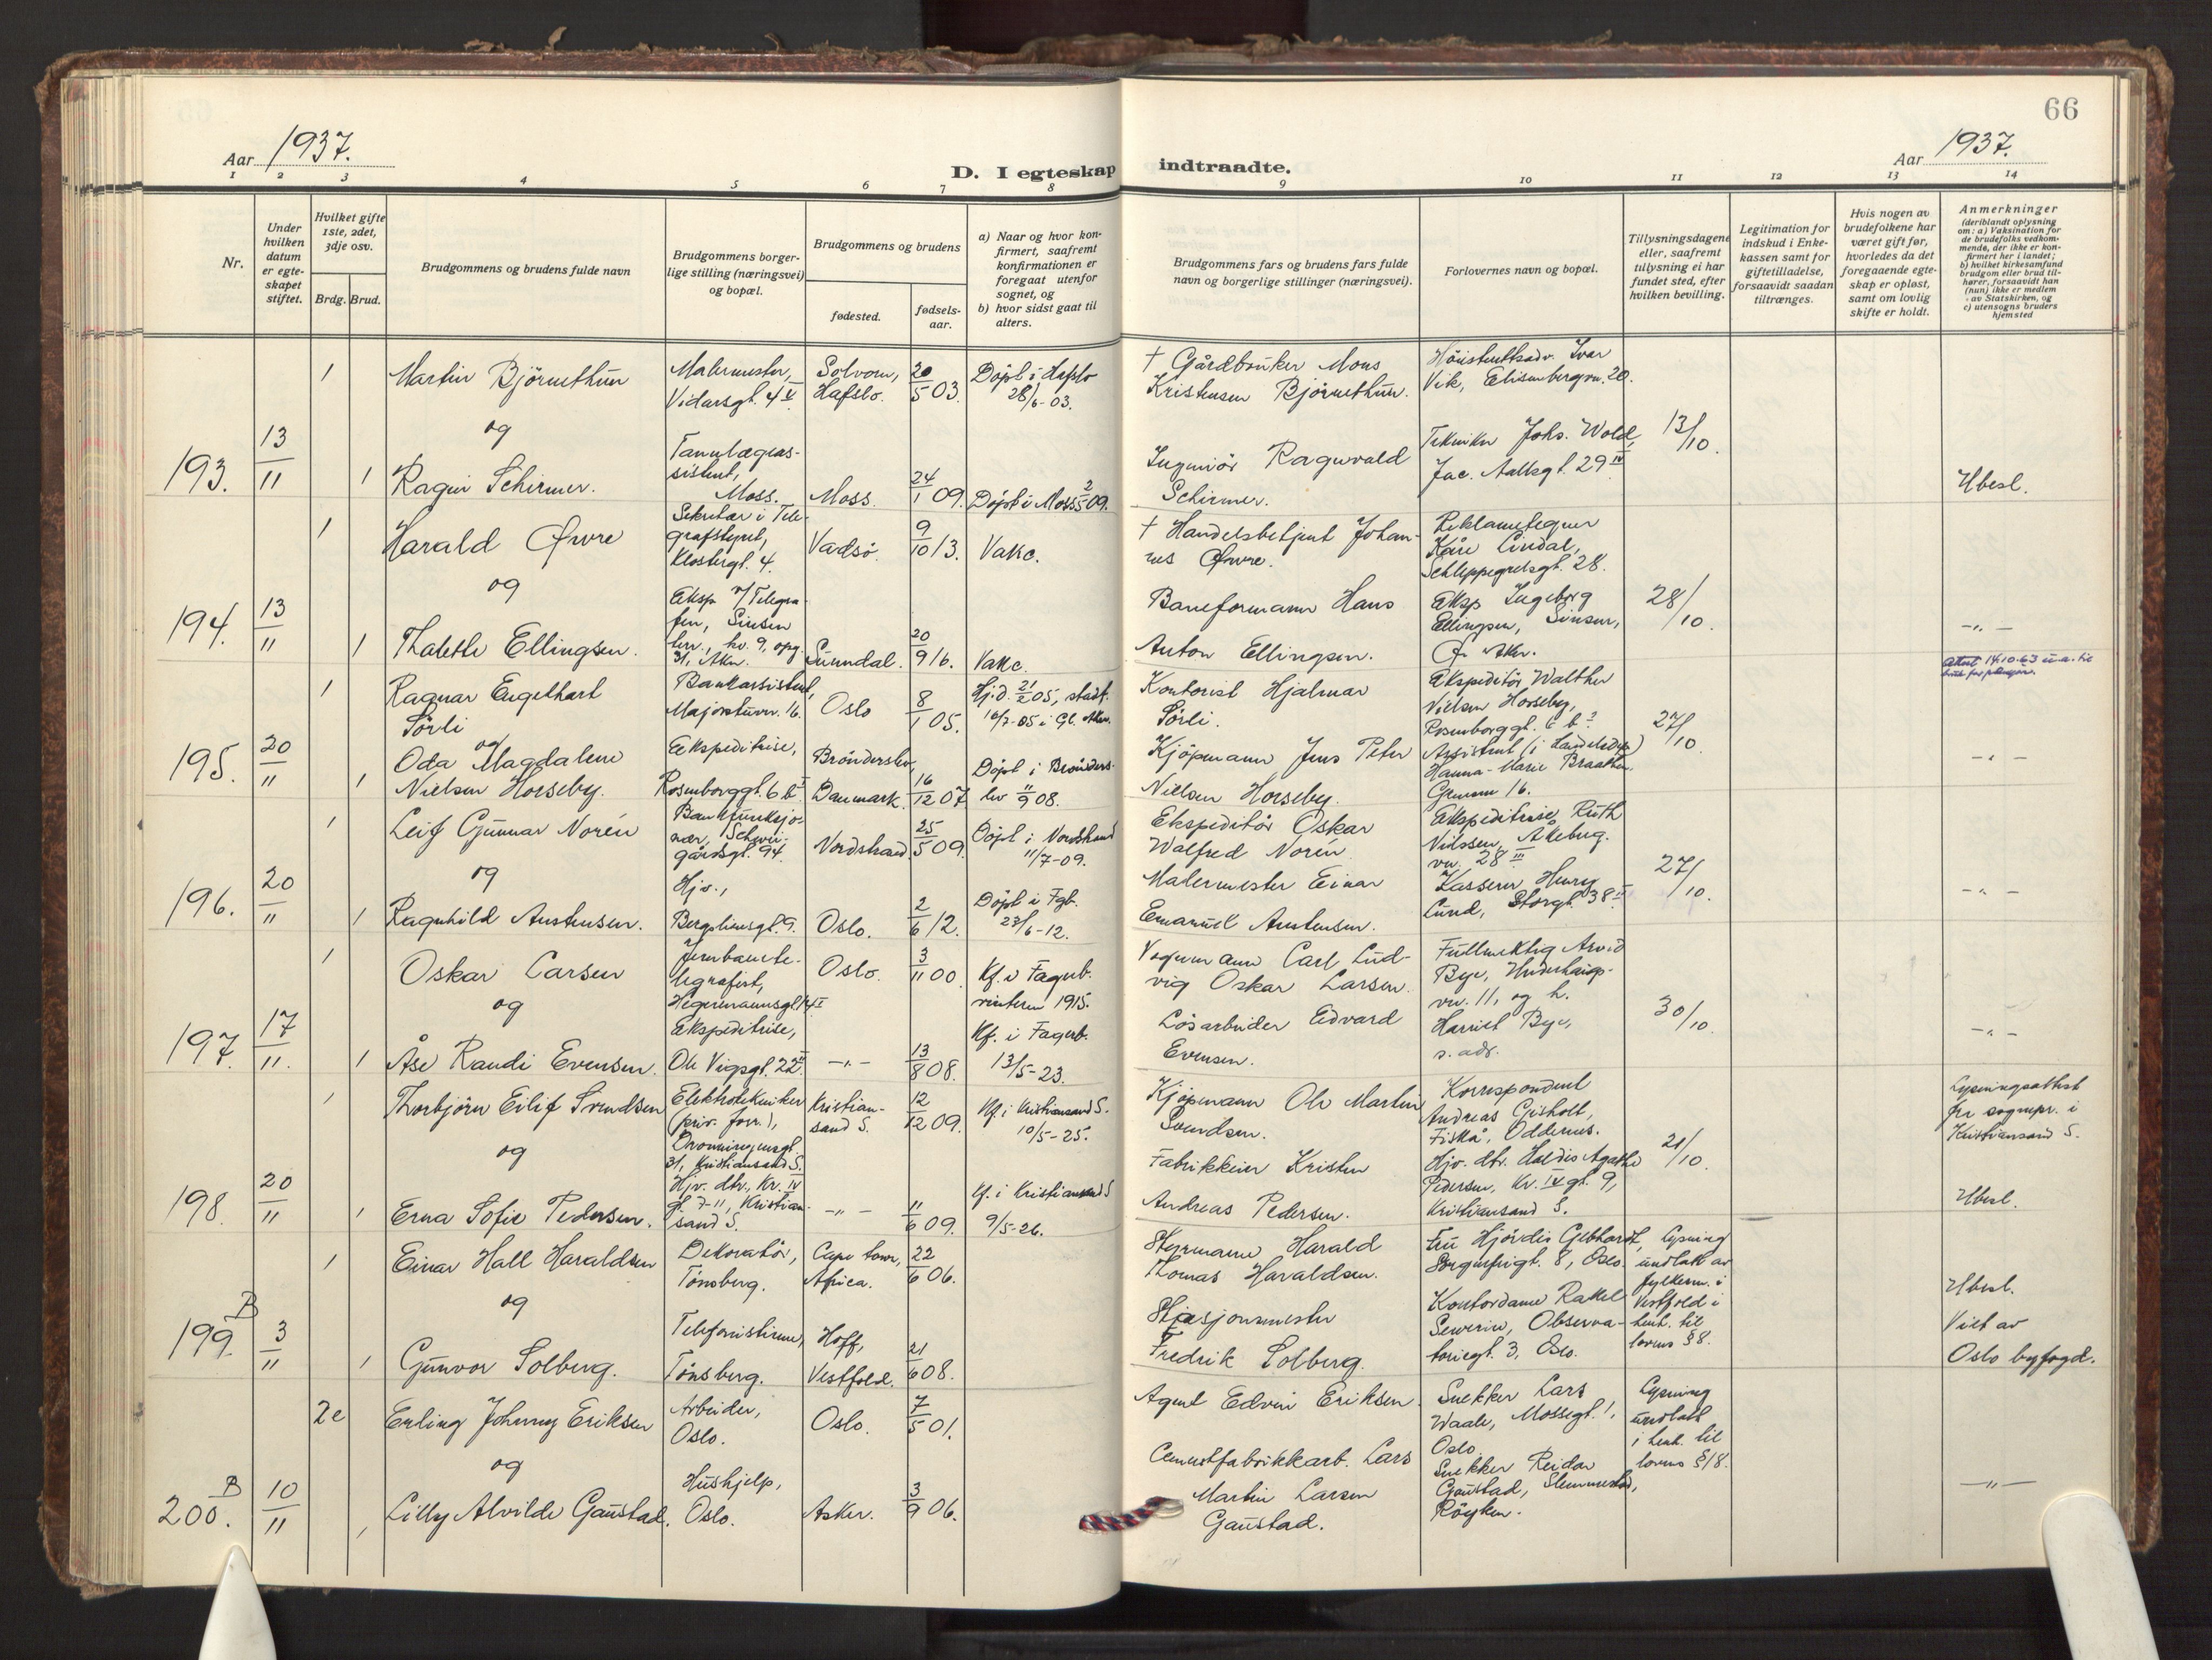 66
Aar 1937.
D. I egteskap indtraadte.
Aar 1937.
1 2 3 4 5 6 7 8 9 10 11 12 13 14
Nr.
Under hvilken datum er egteskapet stiftet.
Hvilket gifte 1ste, 2det, 3dje osv.
Brdg. Brud.
Brudgommens og brudens fulde navn
Brudgommens borgerlige stilling (næringsvei) og bopæl.
Brudgommens og brudens
fødested.
fødselsaar.
a) Naar og hvor konfirmert, saafremt konfirmationen er foregaat utenfor sognet, og
b) hvor sidst gaat til alters.
Brudgommens fars og brudens fars fulde navn og borgerlige stillinger (næringsvei).
Forlovernes navn og bopæl.
Tillysningsdagene eller, saafremt tillysning ei har fundet sted, efter hvilken bevilling.
Legitimation for indskud i Enkekassen samt for giftetilladelse, forsaavidt saadan tiltrænges.
Hvis nogen av brudefolkene har været gift før, hvorledes da det foregaaende egteskap er opløst, samt om lovlig skifte er holdt.
Anmerkninger
(deriblandt oplysning om: a) Vaksination for de brudefolks vedkommende, der ikke er konfirmert her i landet; b) hvilket kirkesamfund brudgom eller brud tilhører, forsaavidt han (hun) ikke er medlem av Statskirken, og c) utensogns bruders hjemsted
193. 13/11
1 Martin Björnethun
Malermester, Vidarsgt. 4 V.
Solvorn, Hafslo. 20/5 03.
Döpt i Hafslo 28/6-03.
† Gårdbruker Mons Kristensen Björnethun.
Höiesterettsadv. Ivar Vik, Elisenbergvn. 20.
og
1 Ragni Schirmer.
Tannlægeassistent, Moss.
Moss. 24/1 09.
Döpt i Moss 2/5 09.
Ingeniör Ragnvald Schirmer.
Tekniker Johs. Wold, Jac. Aallsgt. 29 IV
13/10.
Ubesl.
194. 13/11
1 Harald Øvre
Sekretær i Telegrafstyret, Klostergt. 4.
Vadsö. 9/10 13. Vakc.
† Handelsbetjent Johannes Øvre.
Reklametegner Kåre Lindal, Schleppegrelsgt. 28.
og
1 Thalette Ellingsen.
Eksp v/Telegrafen, Sinsen hv. 9, opg. 31, Akr.
Sunndal. 20/9 16. Vakc.
Baneformann Hans Anton Ellingsen.
Eksp Ingeborg Ellingsen, Sinsen, Ø. Aker.
28/10.
-„-
Attest 14.10.63
195. 20/11
1 Ragnar Engelhart Sörli
Bankassistent, Majorstuvn. 16.
Oslo 8/1 05.
Hj.d. 21/2 05, stadf. 16/7-05 i Gl. Aker.
Kontorist Hjalmar Sörli.
Ekspeditör Walther Nielsen Horseby, Rosenborggt. 6 b
og
1 Oda Magdalene Nielsen Horseby.
Ekspeditrise, Rosenborggt. 6 b I
Brönderslev, Danmark. 16/12 07
Döpt i Brönderslev 11/9 08.
Kjöpmann Jens Peter Nielsen Horseby.
Assistent Hanna-Marie Braathen, Grensen 16.
27/10.
-„-
196. 20/11
1 Leif Gunnar Norén
Bankfunksjonær, Schweigårdsgt. 94.
Nordstrand 25/5 09.
Döpt i Nordstrand 11/7-09.
Ekspeditör Oskar Walfred Norén
Ekspeditrise Ruth Nilssen, Åkebergvn. 28 III.
og
1 Ragnhild Austensen.
Hjv., Bergsliensgt. 9.
Oslo. 2/6 12.
Döpt i Fgb. 23/6-12.
Malermester Einar Emanuel Austensen.
Kasserer Henry Lund, Storgt. 38 II
27/10.
-„-
197. 17/11.
1 Oskar Larsen
Jernbanetelegrafist, Hegermannsgt. 14 I
Oslo. 3/11 00
Kf. i Fagerb. vinteren 1915.
Vognmann Carl Ludvig Oskar Larsen.
Fullmektig Arvid Bye, Underhaugsvn. 11, og h.
og
1 Åse Randi Evensen.
Ekspeditrise, Ole Vigsgt. 22 II
-„- 13/8 08.
Kf. i Fagerb. 13/5-23.
Lösarbeider Edvard Evensen.
Harriet Bye, s. adr.
30/10.
-„-
198. 20/11
1 Thorbjörn Eilif Svendsen
Elektrotekniker (priv. forr.), Dronningensgt. 31, Kristiansand S.
Kristiansand S. 12/12 09.
Kf. i Kristiansand S. 10/5-25.
Kjöpmann Ole Martin Svendsen.
Korrespondent Andreas Gisholt, Fiskå, Oddernes.
Lysningsattest fra sognepr. i Kristiansand S.
og
1 Erna Sofie Pedersen.
Hjv. dtr., Kr. IV gt. 7-11, Kristiansand S.
-„- 11/6 09.
Kf. i Kristiansand S 9/5-26.
Fabrikkeier Kristen Andreas Pedersen.
Hjv. dtr. Haldis Agathe Pedersen, Kr. IV gt. 9, Kristiansand S.
21/10.
Ubesl.
199. B 3/11
1 Einar Hall Haraldsen
Dekoratör, Tönsberg.
Cape town, Africa. 22/6 06.
Styrmann Harald Thomas Haraldsen.
Fru Hjördis Gebhardt, Bogerfrigt. 8, Oslo.
Lysning undlatt av fylkesm. i Vestfold i henh. til lovens § 8.
og
1 Gunvor Solberg.
Telefonistinne, Tönsberg.
Hoff, Vestfold. 21/6 08.
Stasjonsmester Fredrik Solberg.
Kontordame Rakel Severin, Observatoriegt. 3, Oslo.
Ubesl.
Viet av Oslo byfogd.
200. B 10/11
2e Erling Johnny Eriksen
Arbeider, Oslo.
Oslo. 7/5 01.
Agent Edvin Eriksen.
Snekker Lars Waale, Mossegt. 1, Oslo.
Lysning undlatt i henh. til lovens § 18.
og
1 Lilly Alvilde Gaustad.
Hushjelp, Oslo.
Asker. 3/9 06.
Cementfabrikkarb. Lars Martin Larsen Gaustad.
Snekker Reidar Gaustad, Slemmestad, Röyken.
-„-